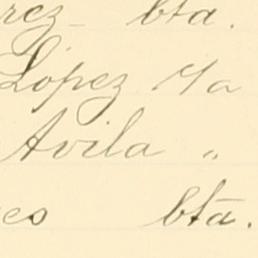 rez bta.
López r/a
Avila "
es bta.